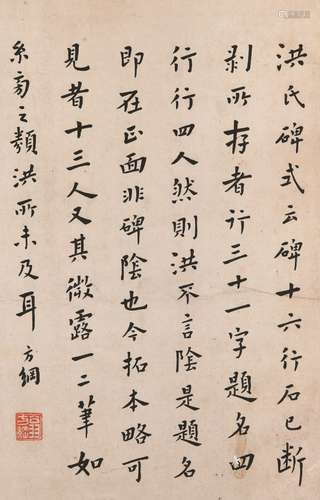 洪氏碑式云碑十六行石已断
剥所存者行三十一字題名四
行行四人然則洪不言陰是題名
即在正面非碑陰也今拓本略可
見者十三人又其微露一二筆如
糸旁之類洪所未及耳 方綱